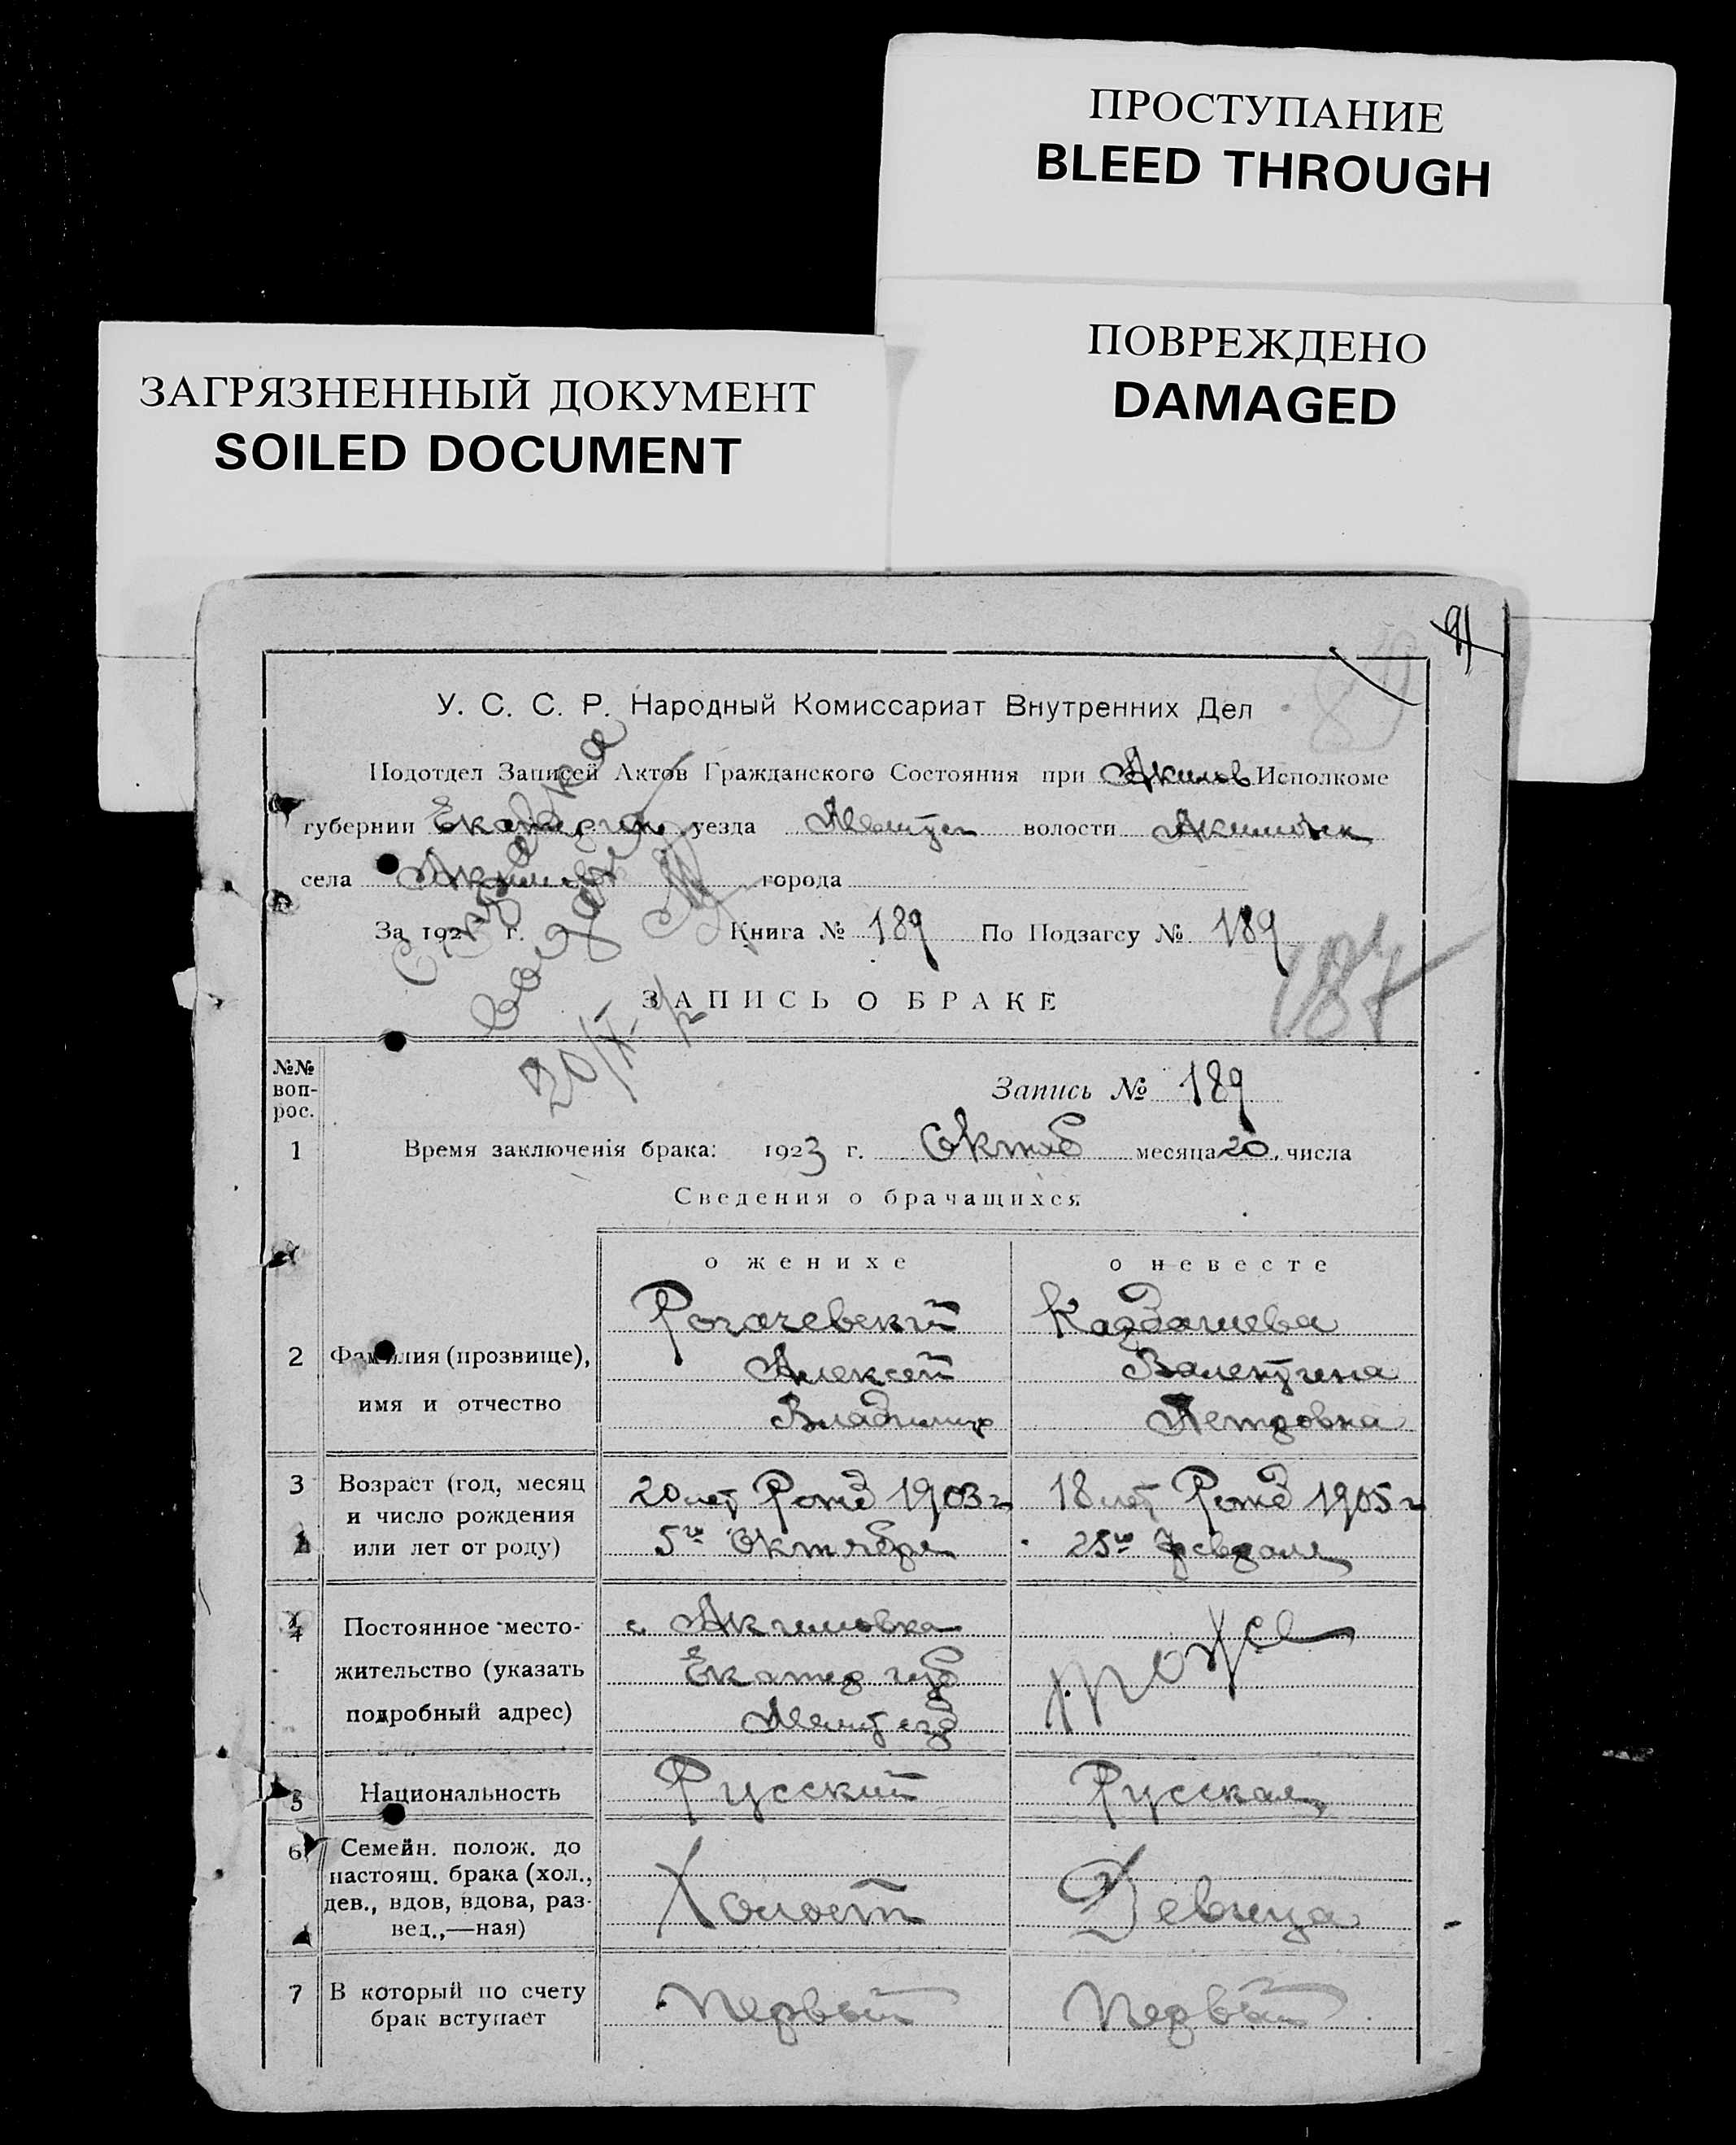 ПРОСТУПАНИЕ
BLEED THROUGH
ПОВРЕЖДЕНО
DAMAGED
ЗАГРЯЗНЕННЫЙ ДОКУМЕНТ
SOILED DOCUMENT
91
У. С. С. Р. Народный Комиссариат Внутренних Дел
Подотдел Записей Актов Гражданского Состояния при Акимов Исполкоме
губернии Екатерин уезда Мелитоп волости Акимовск
села Акимовка города
За 192 г. Книга № 189 По Подзагсу № 189
187
Справка
выдана
20/X
ЗАПИСЬ О БРАКЕ
№№ воп-рос.
Запись № 189
1 Время заключенія брака: 1923 г. Октяб месяца 20 числа
Сведения о брачащихся
о женихе о невесте
Рогачевский Кардашева
2 Фамилия (прозвище), Алексей Валентина
имя и отчество Владимир Петровна
3 Возраст (год, месяц 20 лет Рожд 1903 г 18 лет Рожд 1905 г
и число рождения
или лет от роду) 5го Октября 25го февраля
4 Постоянное место- с. Акимовка тоже
жительство (указать Екатер губ
подробный адрес) Мелит езд
5 Национальность Русский Русская
6 Семейн. полож. до
настоящ. брака (хол.,
дев., вдов, вдова, раз- Холост Девица
вед.,—ная)
7 В который по счету Первый Первый
брак вступает